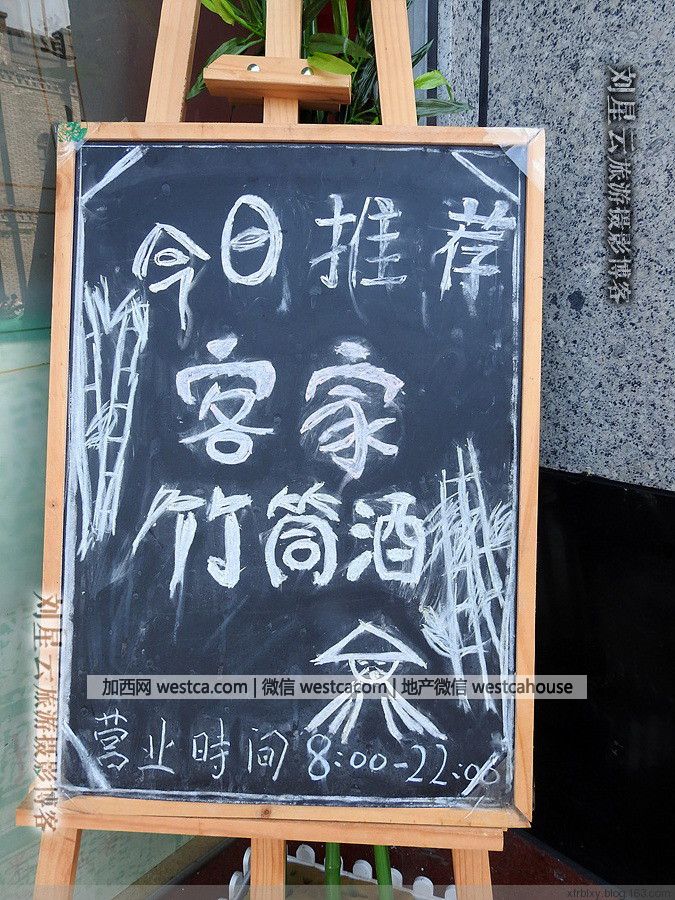 今日推荐
客家
竹筒酒
营业时间 8:00-22:00
加西网 westca.com | 微信 westcacom | 地产微信 westcahouse
刘星云旅游摄影博客
刘星云旅游摄影博客
xfrblxy.blog.163.com